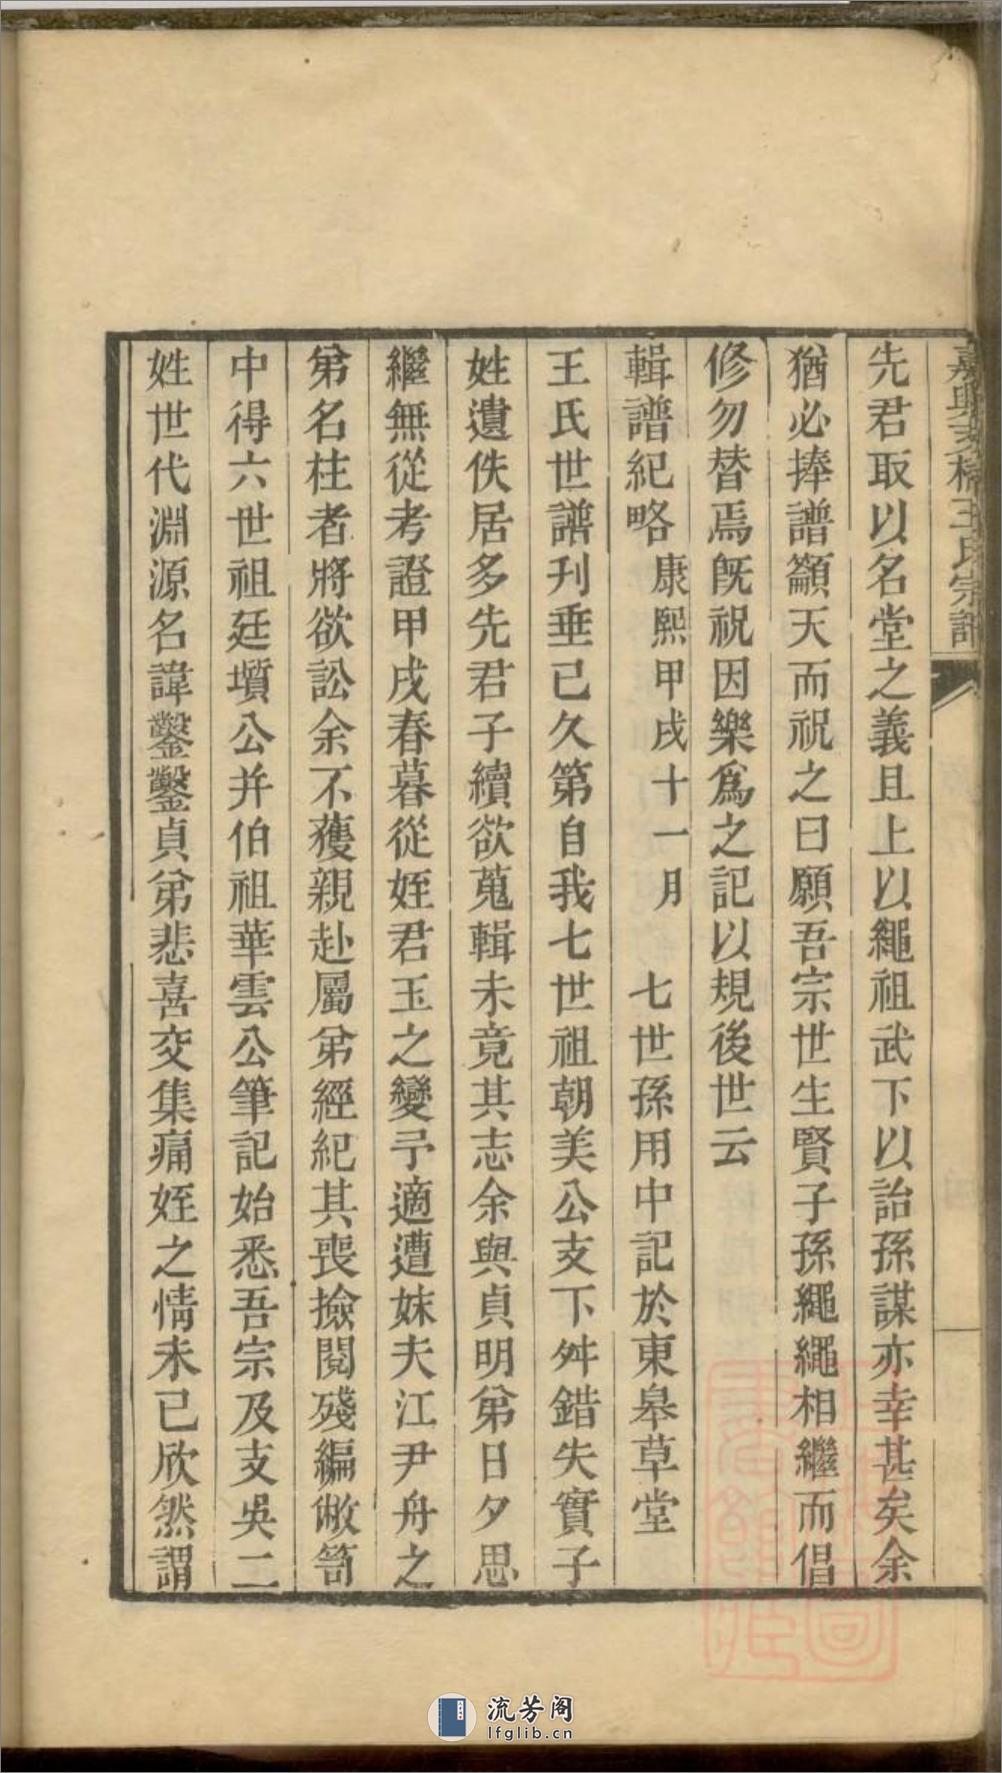 嘉興支橋王氏宗譜
先君取以名堂之義且上以繩祖武下以詒孫謀亦幸甚矣余
猶必捧譜籲天而祝之曰願吾宗世生賢子孫繩繩相繼而倡
修勿替焉旣祝因樂爲之記以規後世云
輯譜紀略 康熙甲戌十一月 七世孫用中記於東皋草堂
王氏世譜刊垂已久第自我七世祖朝美公支下舛錯失實子
姓遺佚居多先君子續欲蒐輯未竟其志余與貞明弟日夕思
繼無從考證甲戌春暮從姪君玉之變予適遭妹夫江尹舟之
弟名柱者將欲訟余不獲親赴屬弟經紀其喪撿閱殘編敝笥
中得六世祖廷墳公并伯祖華雲公筆記始悉吾宗及支吳二
姓世代淵源名諱鑿鑿貞弟悲喜交集痛姪之情未已欣然謂
流芳阁
lfglib.cn